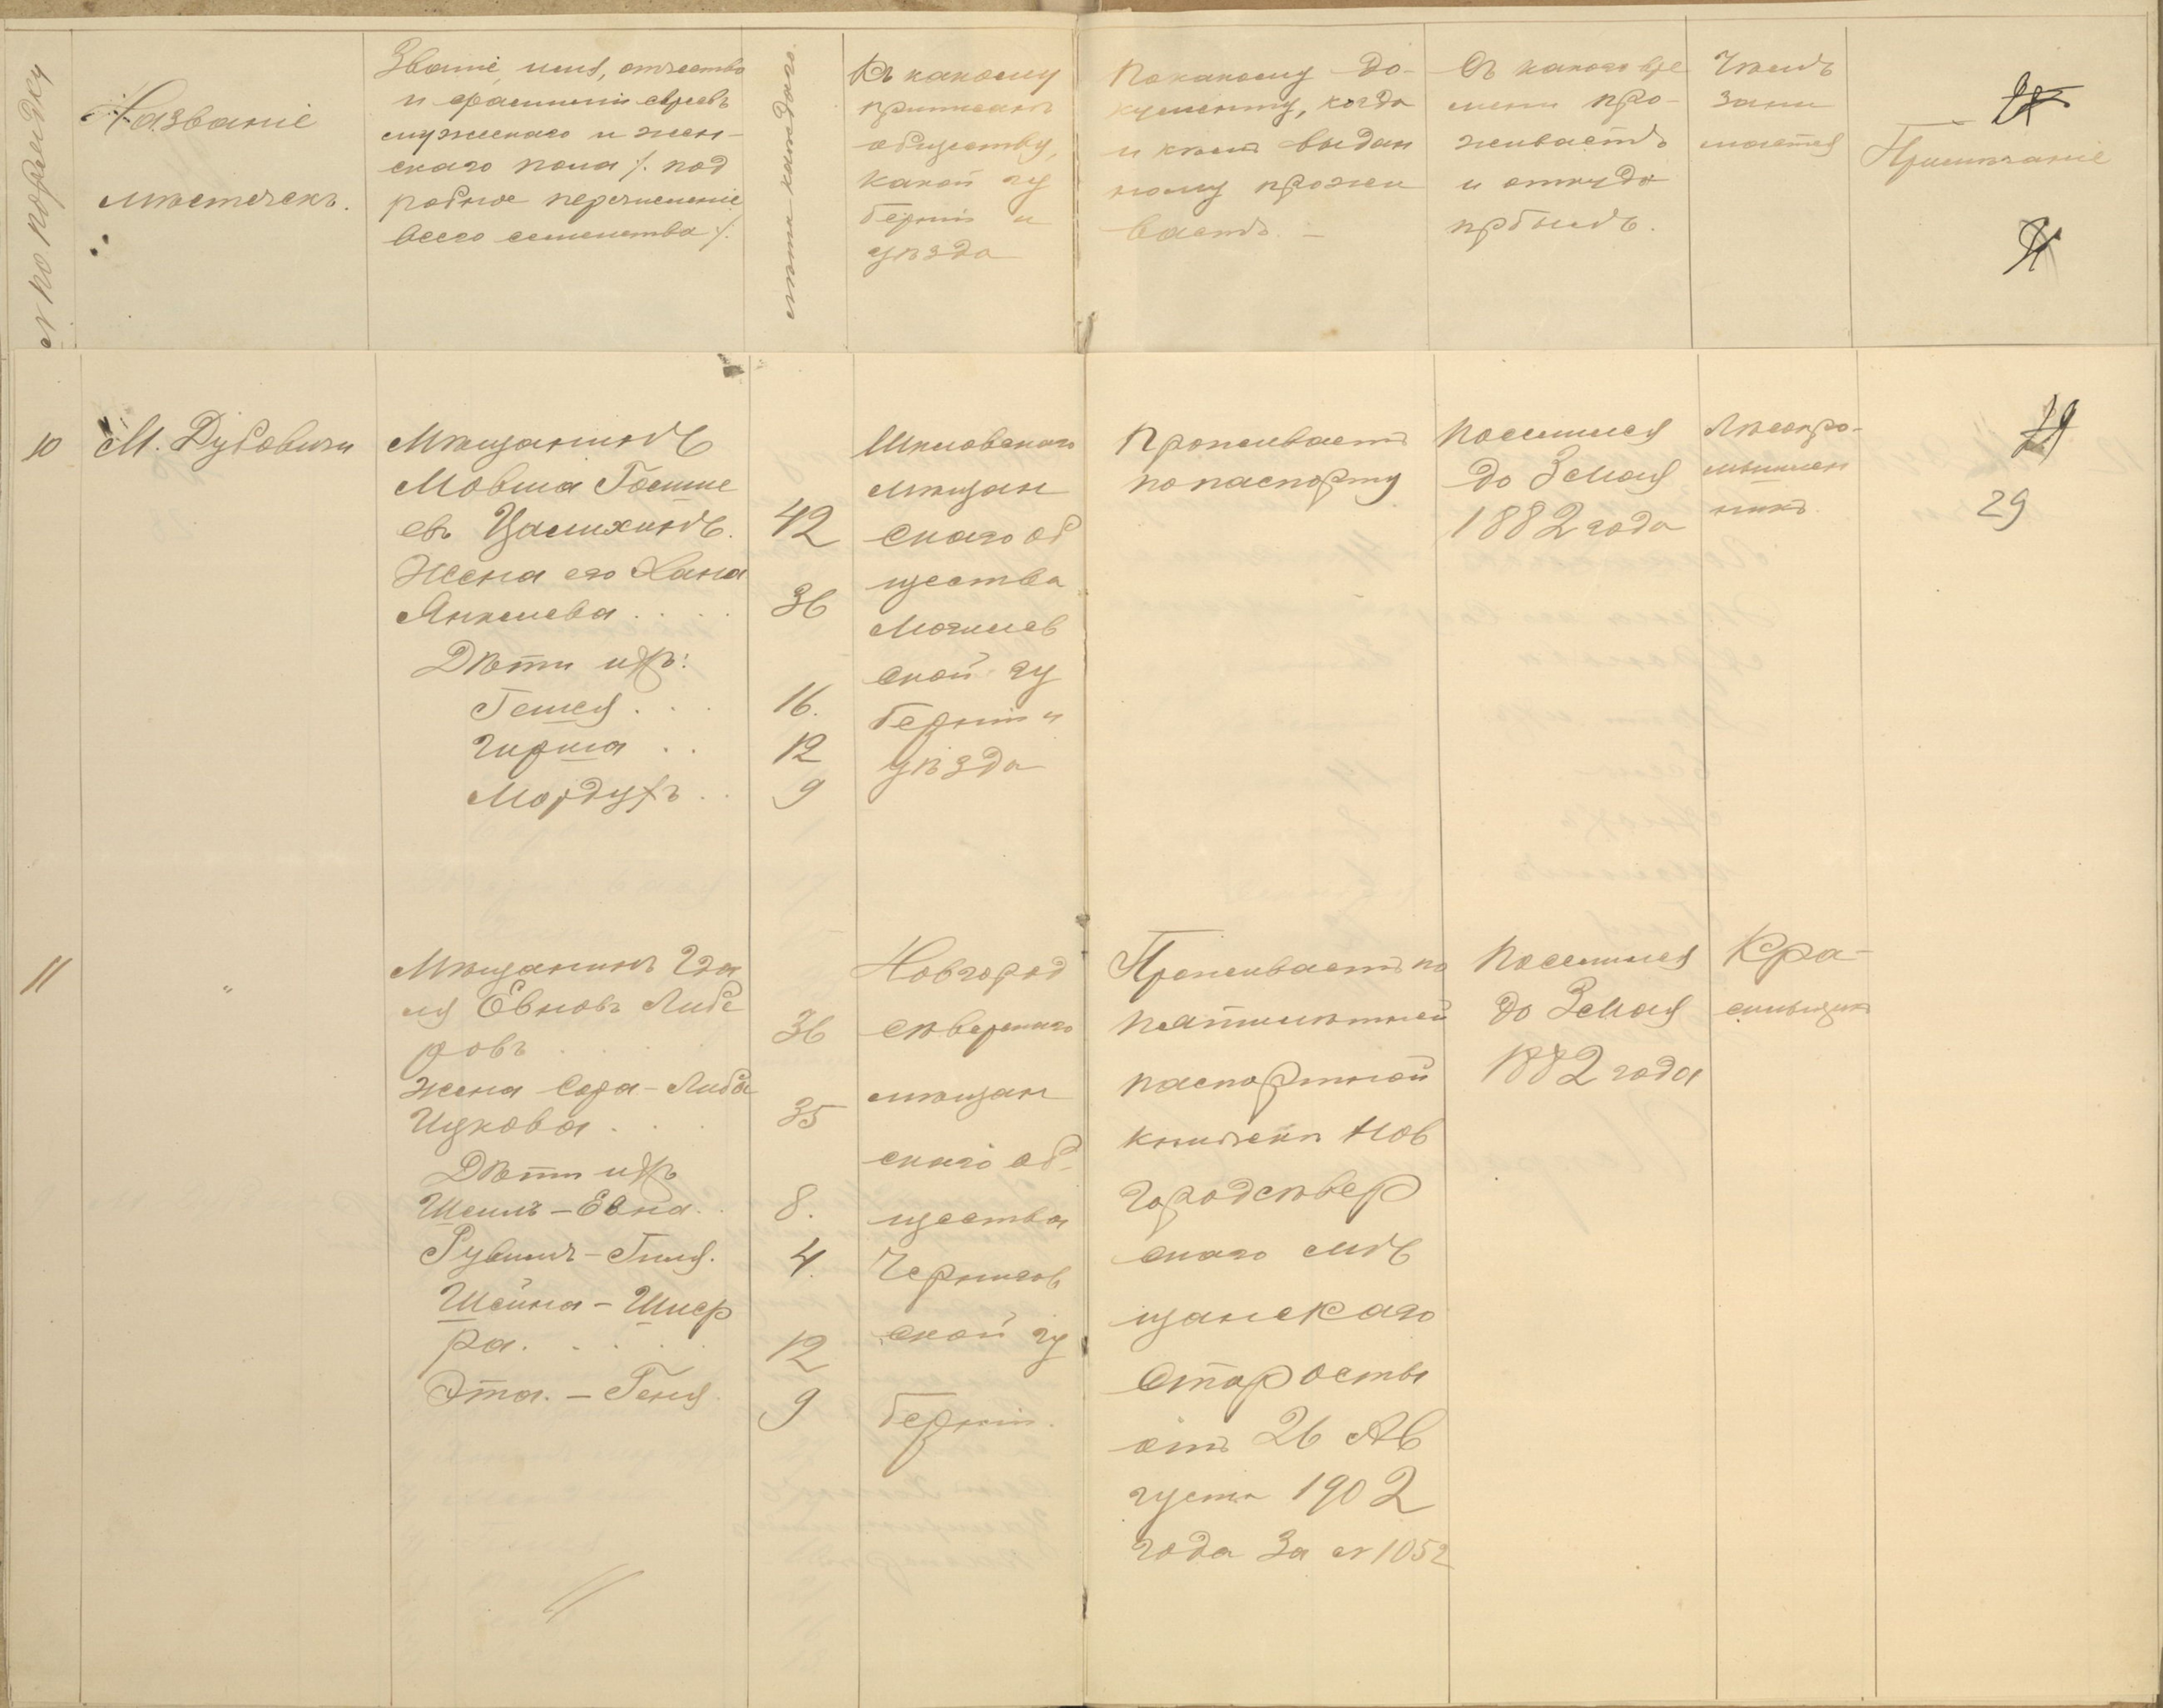 № по порядку
Названіе
мѣстечекъ.
Званіе, имя, отчество
и фамилія евреевъ
мужскаго и жен-
скаго пола /. под
робное перечисленіе
всего семейства /.
лѣта каждаго.
Къ какому
приписанъ
обществу,
какой гу
берніи и
уѣзда
По какому до-
кументу, когда
и кѣмъ выдан
ному прожи
ваетъ. –
Съ какого вре
мени про-
живаетъ
и откуда
прбылъ.
Чѣмъ
зани
мается
Примѣчаніе
10
М. Дубовичи
Мѣщанинъ
Мовша
евъ Цалихинъ.
42
Жена его Хана
Янкелева . . . .
36
Дѣти ихъ:
Гешея . . .
16.
Гирша . .
12
Мордухъ . .
9
Шкловскаго
мѣщан
скаго об
щества
Могилев
ской гу
берніи и
уѣзда
Проживаетъ
по паспорту
Поселился
до 3 Мая
1882 года
Лѣсопро-
мышлен
никъ
29
11
"
Мѣщанинъ Гда
ля Евновъ Либе
ровъ . . . .
36
жена Сора-Либа
Ицкова . . .
35
Дѣти ихъ
Шеилъ-Евна. .
8.
Рувимъ-Гиля.
4.
Шейна-Шиф
ра. . . . . .
12
Эта.-Геня.
9
Новгород
сѣверскаго
мѣщан
скаго об-
щества
Чернигов
ской гу
берніи.
Проживаетъ по
пятилѣтней
паспортной
книжкѣ Нов
городсѣвер
скаго мѣ
щанскаго
Старосты
отъ 26 Ав
густа 1902
года за № 1052
Поселился
до 3 Мая
1882 года
Кра-
сильщикъ